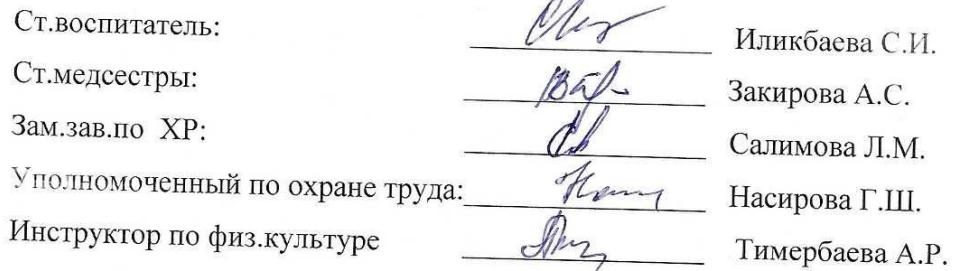 Ст.воспитатель: Иликбаева С.И.
Ст.медсестры: Закирова А.С.
Зам.зав.по ХР: Салимова Л.М.
Уполномоченный по охране труда: Насирова Г.Ш.
Инструктор по физ.культуре Тимербаева А.Р.